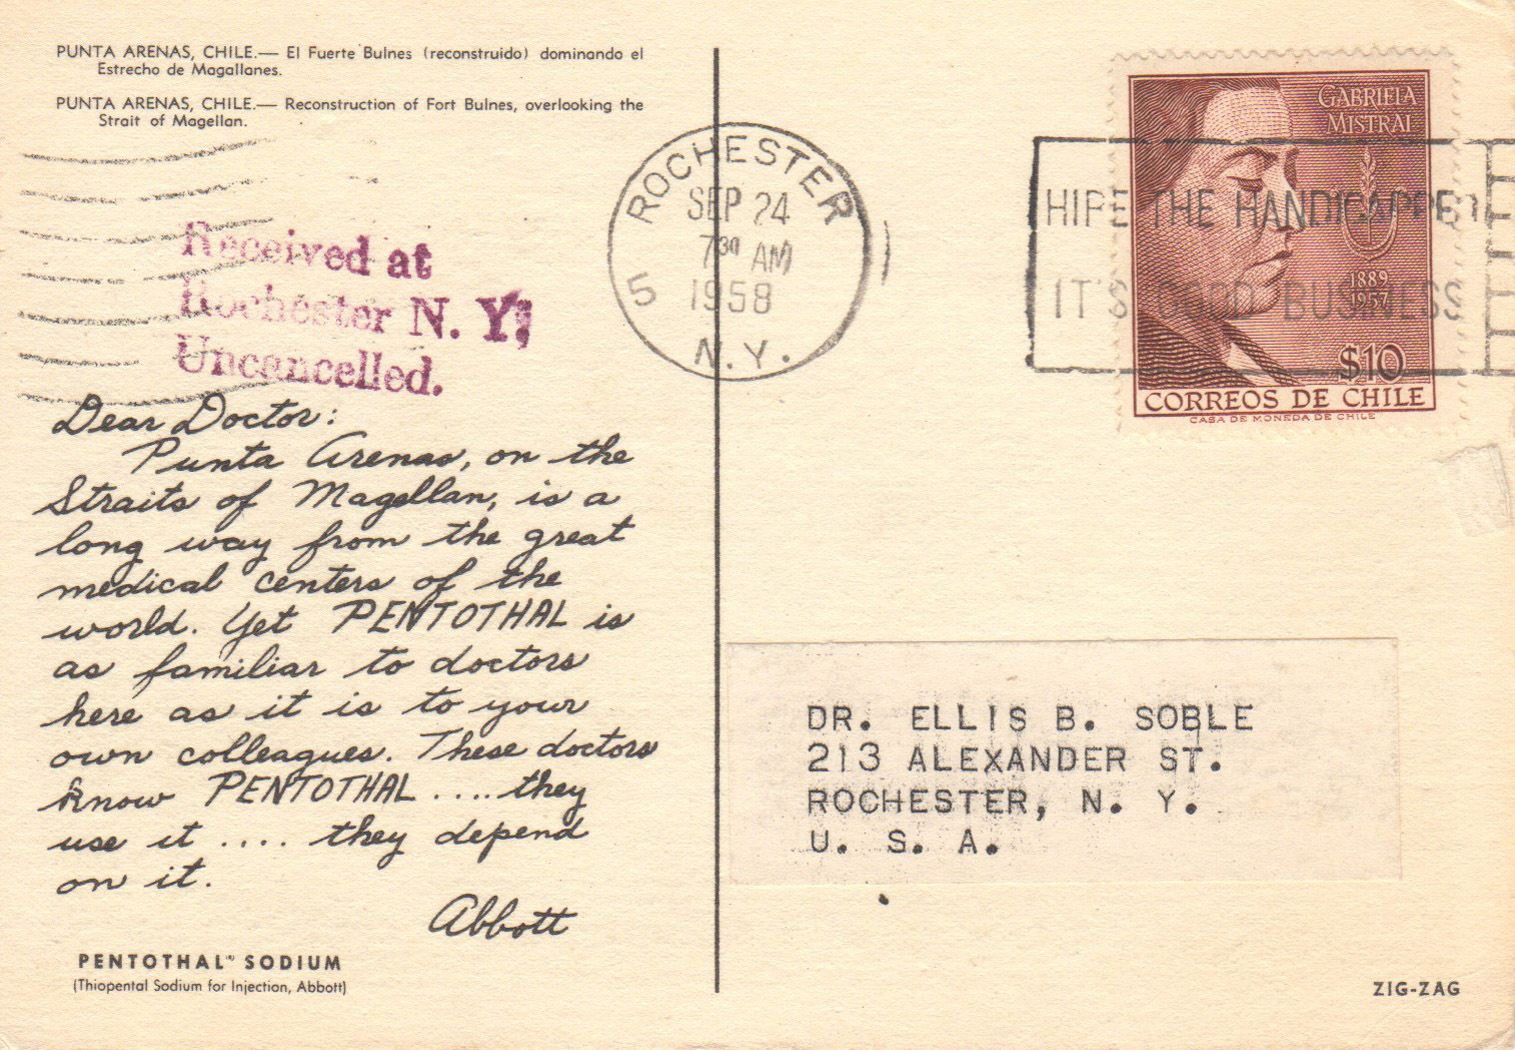 PUNTA ARENAS, CHILE.— El Fuerte Bulnes (reconstruido) dominando el
Estrecho de Magallanes.
PUNTA ARENAS, CHILE.— Reconstruction of Fort Bulnes, overlooking the
Strait of Magellan.
Received at
Rochester N. Y.,
Uncancelled.
Dear Doctor:
Punta Arenas, on the
Straits of Magellan, is a
long way from the great
medical centers of the
world. Yet PENTOTHAL is
as familiar to doctors
here as it is to your
own colleagues. These doctors
know PENTOTHAL .... they
use it .... they depend
on it.
Abbott
PENTOTHAL® SODIUM
(Thiopental Sodium for Injection, Abbott)
ROCHESTER
SEP 24
7 30 AM
1958
5
N.Y.
HIRE THE HANDICAPPED
IT'S GOOD BUSINESS
GABRIELA
MISTRAL
1889
1957
$10
CORREOS DE CHILE
CASA DE MONEDA DE CHILE
DR. ELLIS B. SOBLE
213 ALEXANDER ST.
ROCHESTER, N. Y.
U. S. A.
ZIG-ZAG